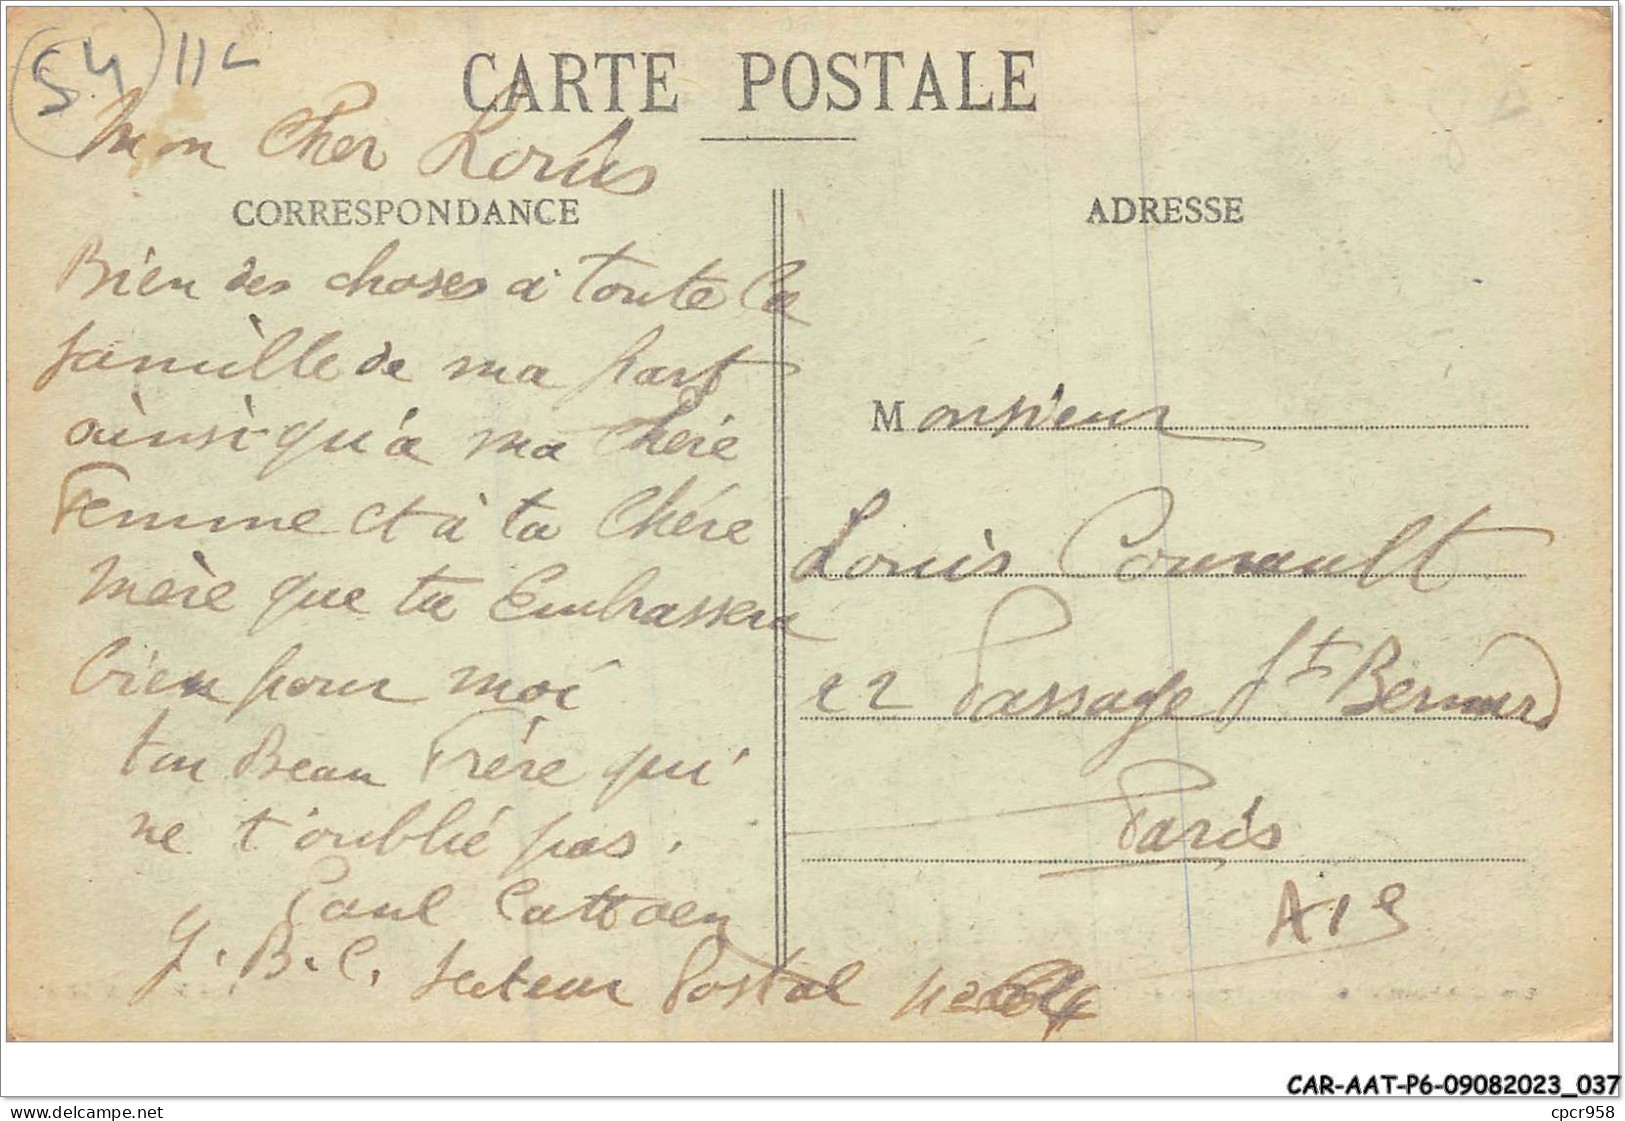 54 11-
CARTE POSTALE
Mon Cher Louis
CORRESPONDANCE
Bien des choses a toute la
famille de ma part
ainsi qu'a ma chère
Femme et à ta Chére
mère que tu Embrassera
bien pour moi
ton Beau Frère qui
ne t'oublié pas.
Paul Cattoen
G.B.C. Secteur Postal
ADRESSE
Monsieur
Louis
22 Passage St Bernard
Paris
CAR-AAT-P6-09082023_037
www.delcampe.net
cpcr958